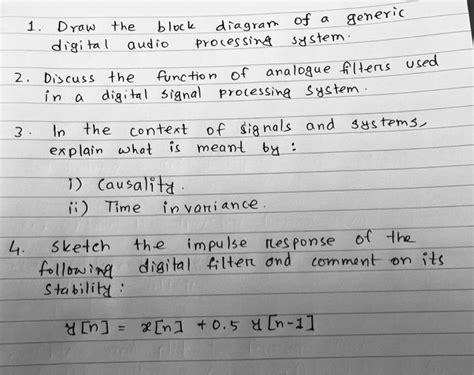 1. Draw the block diagram of a generic
digital audio processing system.
2. Discuss the function of analogue filters used
in a digital signal processing system.
3. In the context of signals and systems,
explain what is meant by :
i) Causality.
ii) Time invariance.
4. Sketch the impulse response of the
following digital filter and comment on its
stability :
y[n] = x[n] + 0.5 y[n-1]